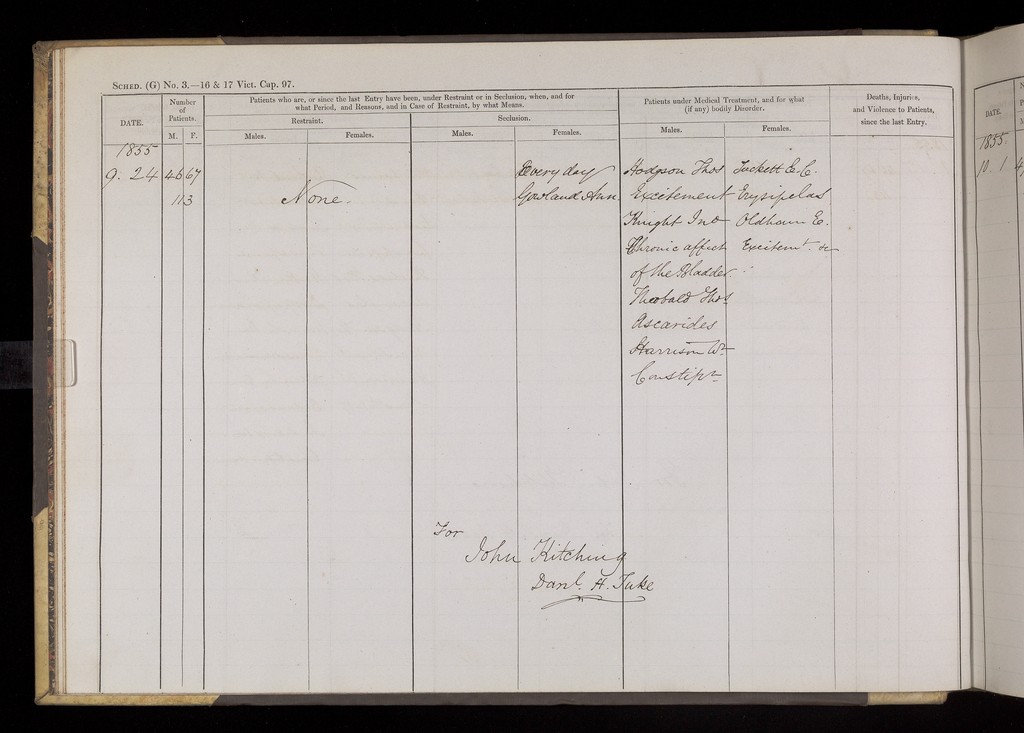 SCHED. (G) No. 3.—16 & 17 Vict. Cap. 97.
DATE.
Number of Patients.
M. F.
Patients who are, or since the last Entry have been, under Restraint or in Seclusion, when, and for
what Period, and Reasons, and in Case of Restraint, by what Means.
Restraint.
Males. Females.
Seclusion.
Males. Females.
Patients under Medical Treatment, and for what
(if any) bodily Disorder.
Males. Females.
Deaths, Injuries,
and Violence to Patients,
since the last Entry.
1855
9. 24 46 67
113
None.
Every day
Gowland Ann
Hodgson Thos
Excitement
Knight Jno
Chronic affect
of the Bladder
Theobald Thos
Ascarides
Harrison Wm
Constipn
Tuckett E. C.
Erysipelas
Oldham E.
Excitemt. &c
For
John Kitching
Danl. H. Tuke
DATE.
1855.
10. 1